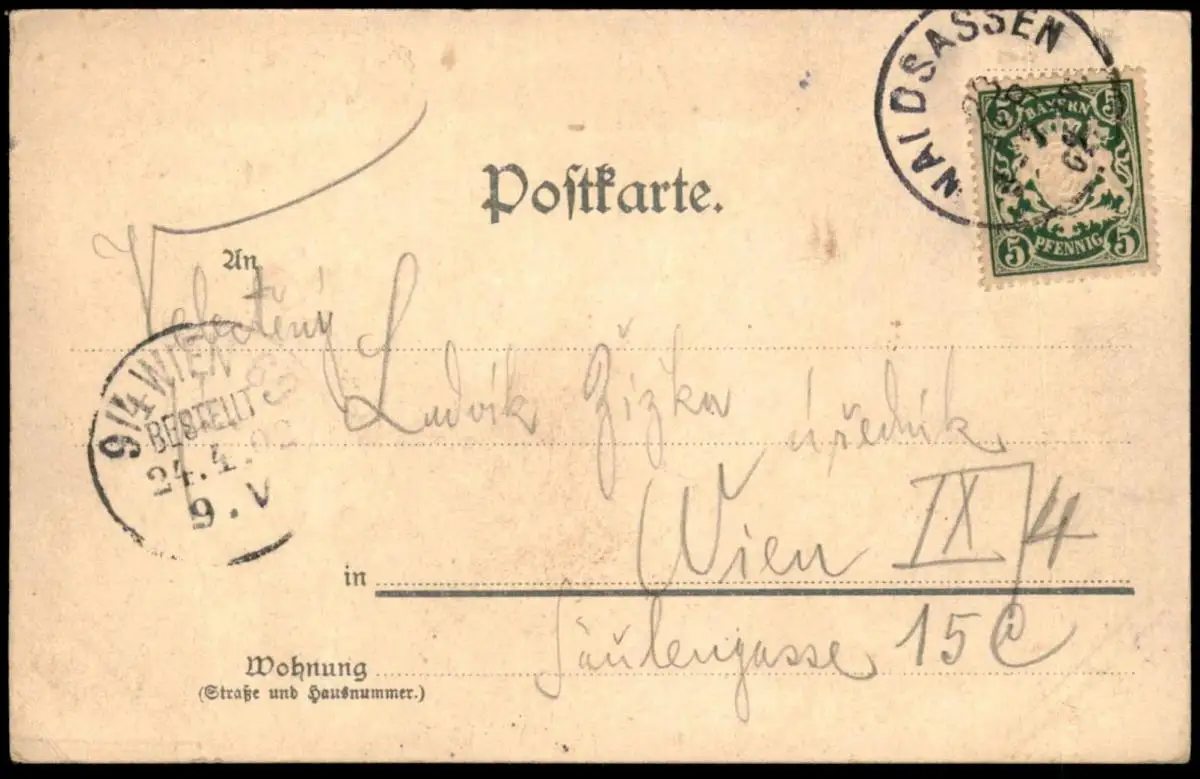 WALDSASSEN
5 BAYERN 5
5 PFENNIG 5
Postkarte.
An
Velectěný
Ludvík Žižka úředník
9/4 WIEN 63
BESTELLT
24.4.02
9.V
in Wien IX/4
Säulengasse 15
Wohnung
(Straße und Hausnummer.)